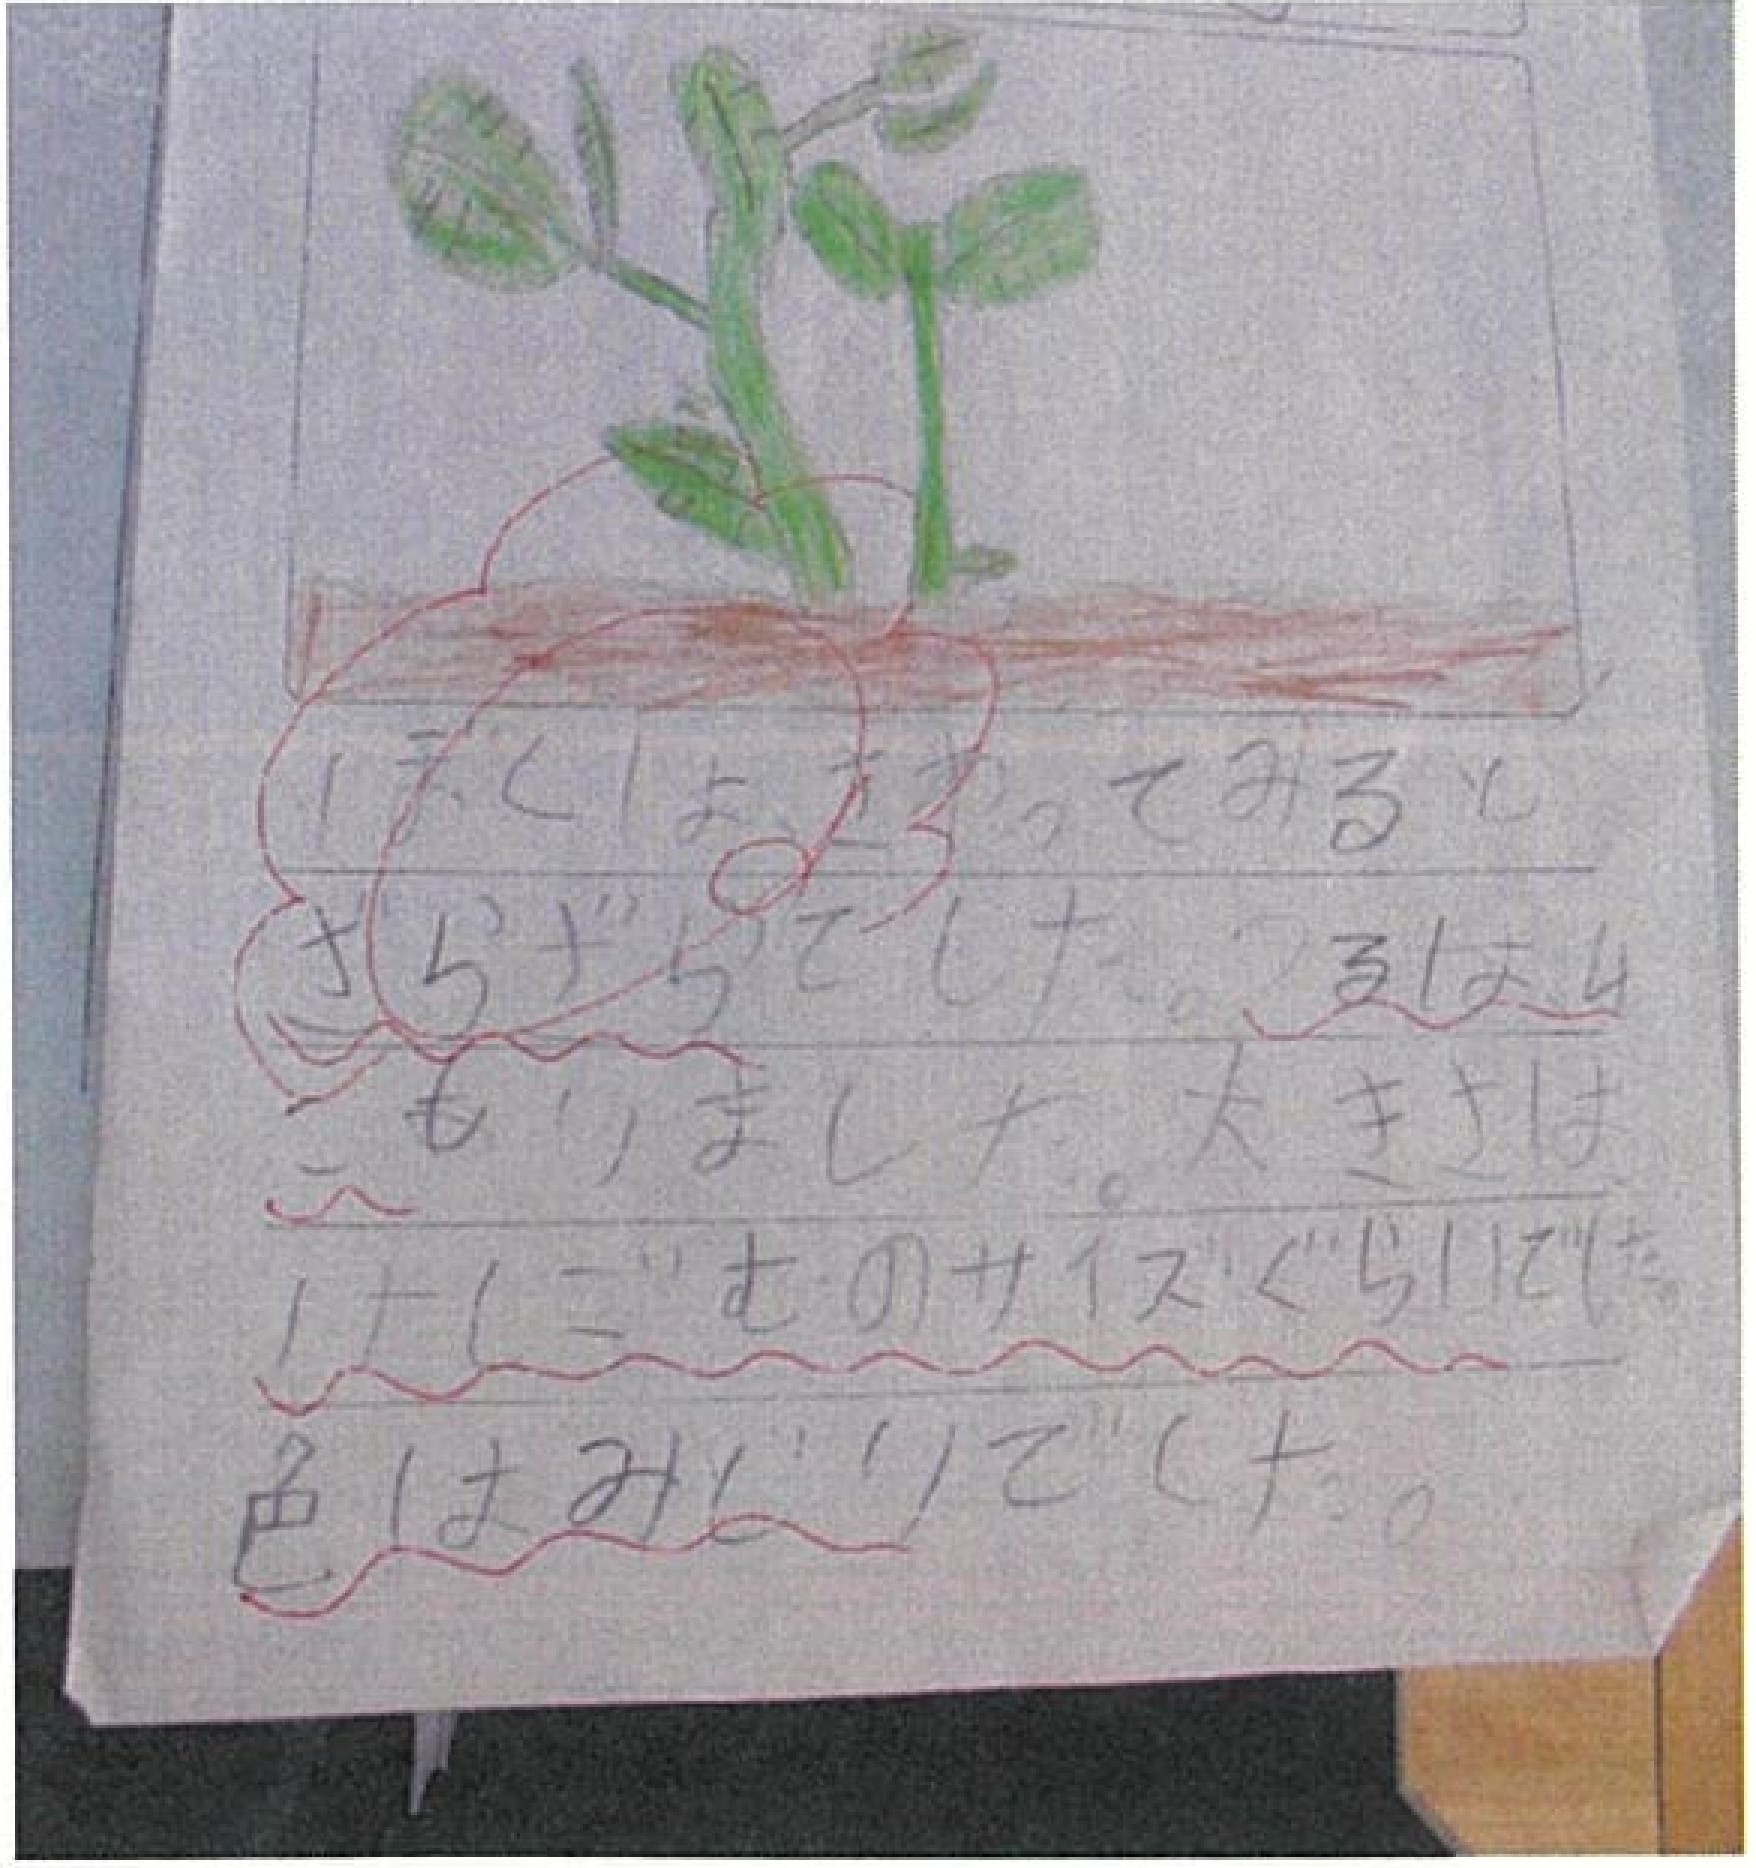 ぼくは、さわってみると
ざらざらでした。つるはに
こもりました。大きさは
けしごむのサイズぐらいでした。
色はみどりでした。